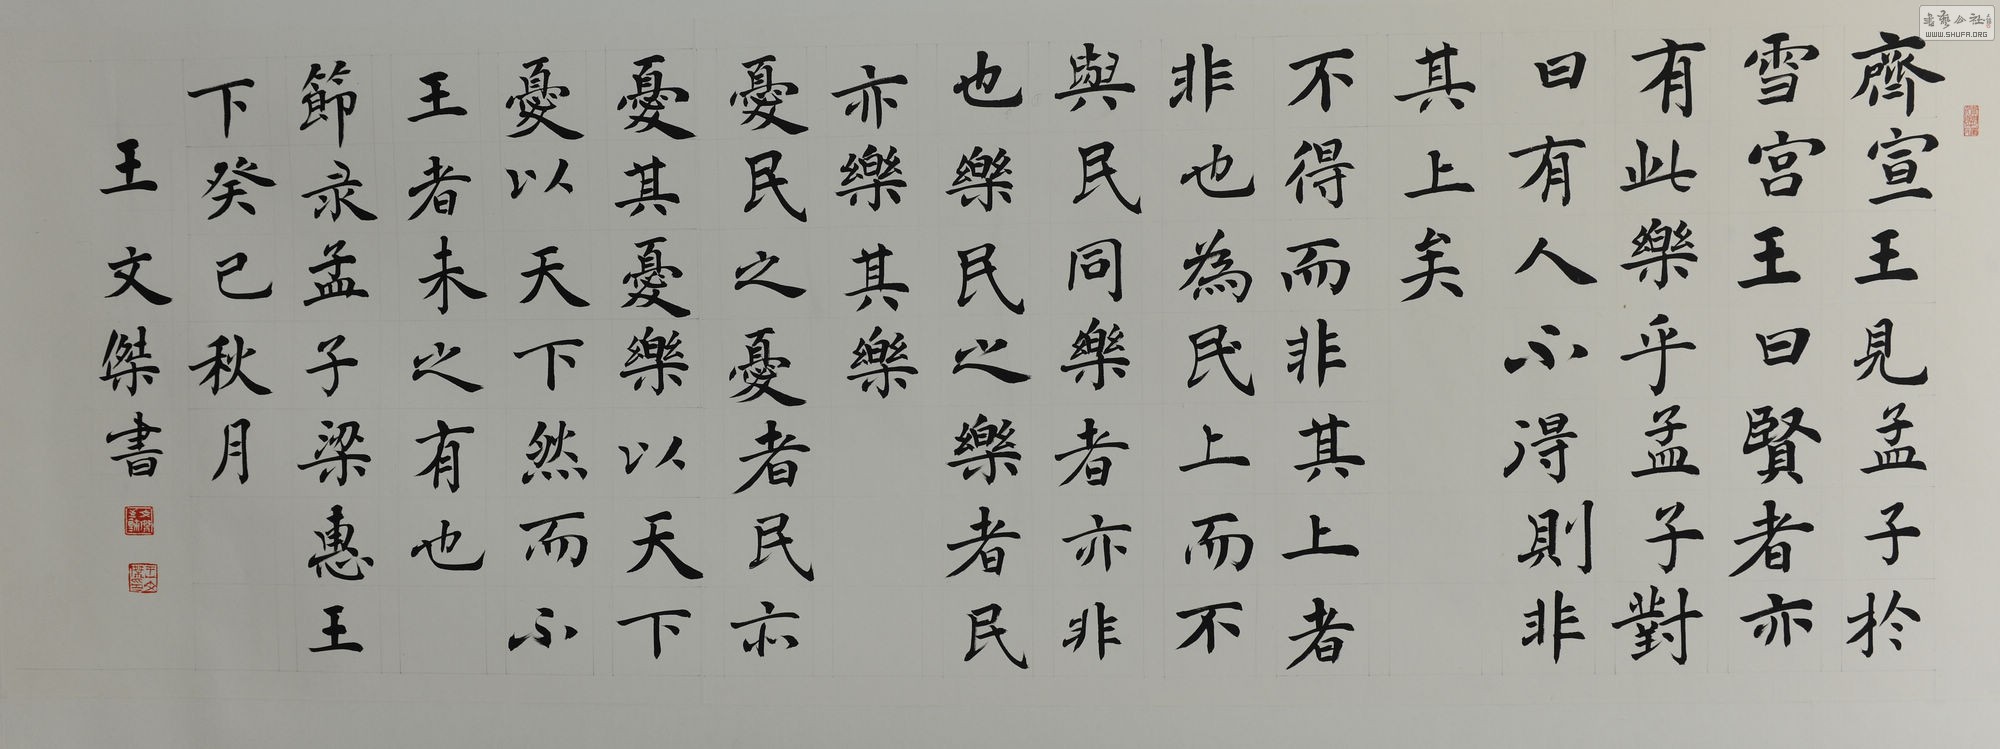 齊宣王見孟子於
雪宮王曰賢者亦
有此樂乎孟子對
曰有人不得則非
其上矣
不得而非其上者
非也為民上而不
與民同樂者亦非
也樂民之樂者民
亦樂其樂
憂民之憂者民亦
憂其憂樂以天下
憂以天下然而不
王者未之有也
節录孟子梁惠王
下癸巳秋月
王文傑書
书艺公社
WWW.SHUFA.ORG